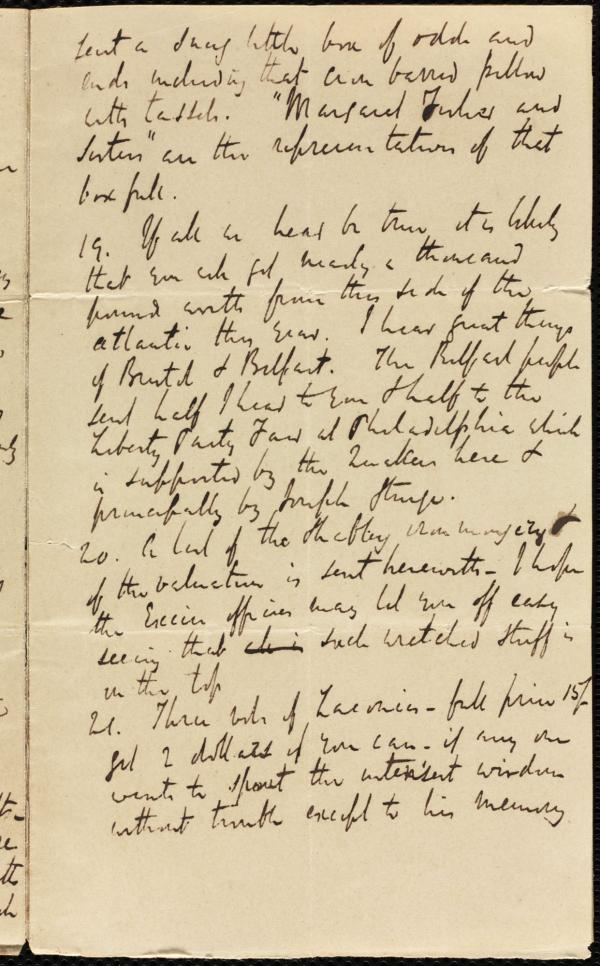 sent a snug little box of odds and
ends including that cross barred pillow
with tassels. "Margaret Fisher and
Sisters" are the representatives of that
box full.
19. If all we hear be true, it is likely
that you will get nearly a thousand
pounds worth from this side of the
atlantic this year. I hear great things
of Bristol & Belfast. The Belfast people
sent half I hear to you & half to the
Liberty Party Fair at Philadelphia which
is supported by the Quakers here &
principally by Joseph Sturge.
20. A list of the Shabby ironmongery &
of the valuation is sent herewith – I hope
the Excise officers may let you off easy
seeing that such wretched stuff is
in the top
21. Three vols of Laconics – full price 15/-
get 2 dollars if you can – if any one
wants to sport the wisdom
without trouble except to his memory